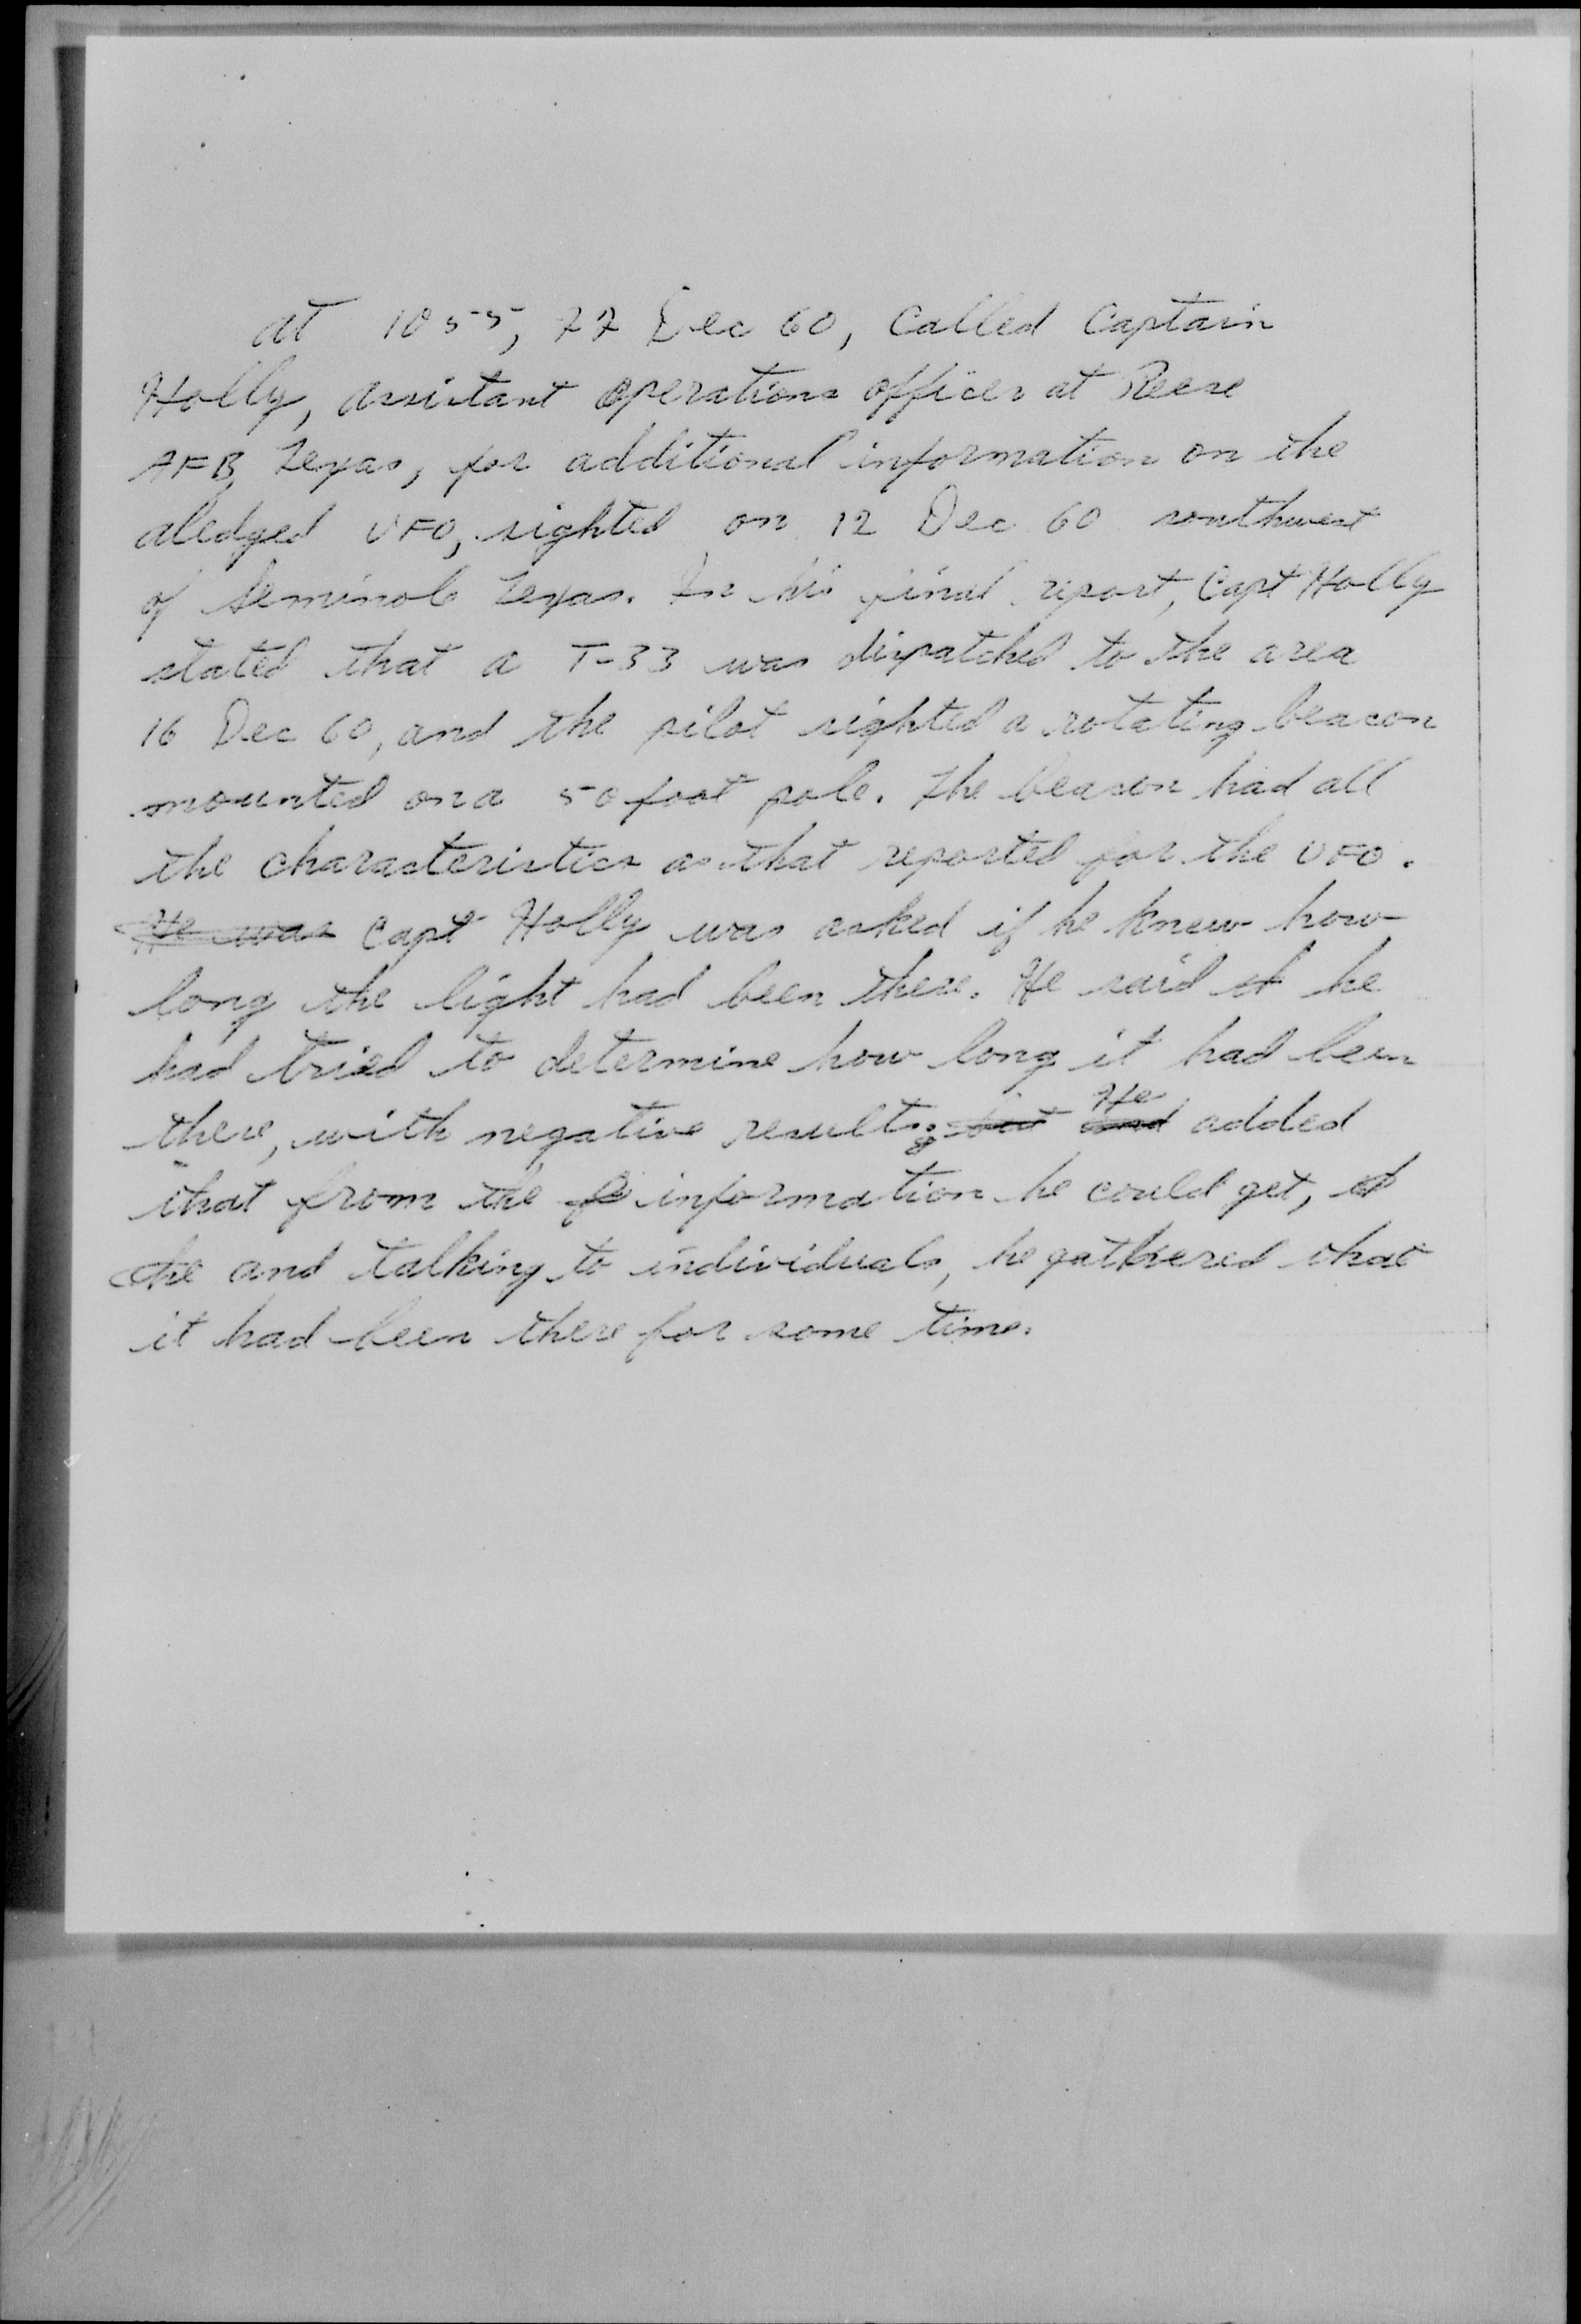 At 1055, 22 Dec 60, Called Captain
Holly, assistant operations officer at Reese
AFB, Texas, for additional information on the
aledged UFO, sighted on 12 Dec 60 southwest
of Seminole Texas. In his final report, Capt Holly
stated that a T-33 was dispatched to the area
16 Dec 60, and the pilot sighted a rotating beacon
mounted on a 50 foot pole. The beacon had all
the characteristics as that reported for the UFO.
He was Capt Holly was asked if he knew how
long the light had been there. He said it he
had tried to determine how long it had been
there, with negative results; but and He added
that from the information he could get,
he and talking to individuals, he gathered that
it had been there for some time.